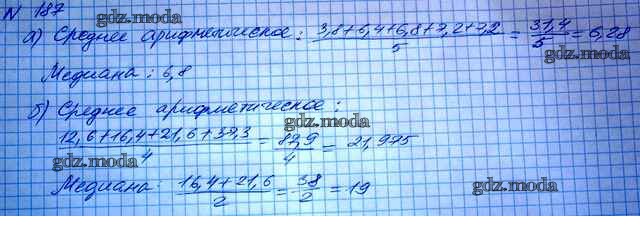 N 187
gdz.moda
а) Среднее арифметическое: 3,8+6,4+6,8+7,2+7,2 / 5 = 31,4 / 5 = 6,28
gdz.moda
gdz.moda
Медиана: 6,8
б) Среднее арифметическое:
gdz.moda
12,6+16,4+21,6+37,3 / 4 = 87,9 / 4 = 21,975
gdz.moda
Медиана: 16,4+21,6 / 2 = 38 / 2 = 19
gdz.moda